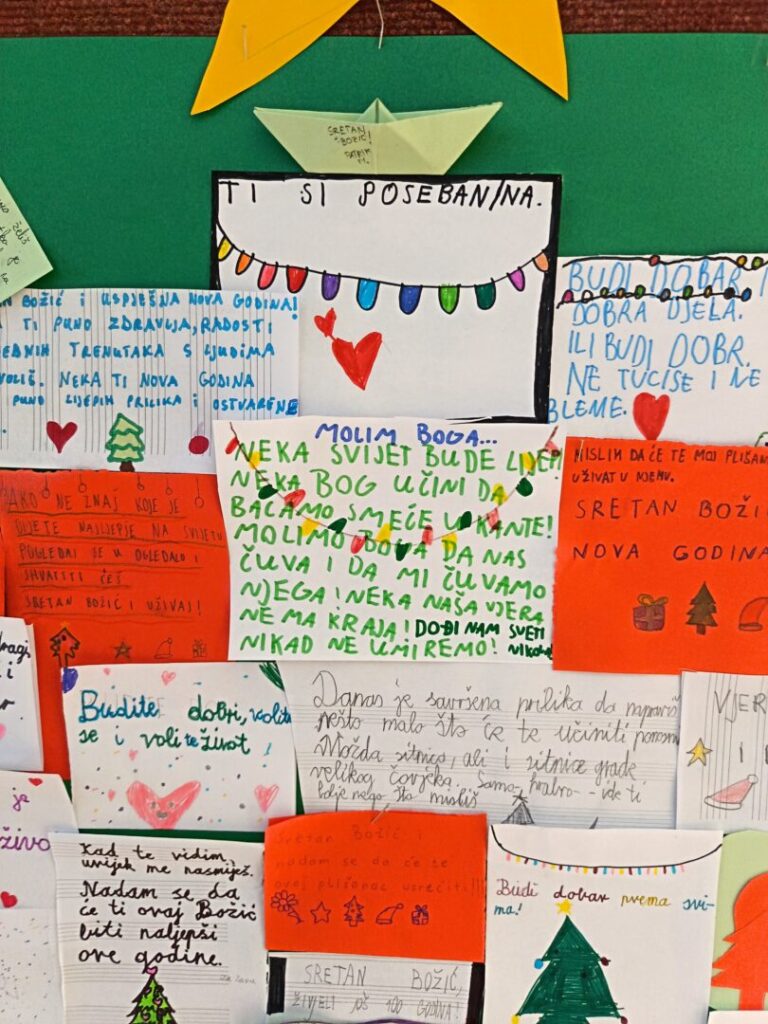 SRETAN
BOŽIĆ!
PATRIK
TI SI POSEBAN/NA.
BOŽIĆ i USPJEŠNA NOVA GODINA!
TI PUNO ZDRAVLJA, RADOSTI
TRENUTAKA S LJUDIMA
VOLIŠ. NEKA TI NOVA GODINA
PUNO LIJEPIH PRILIKA i OSTVARENE
BUDI DOBAR
DOBRA DJELA.
ILI BUDI DOBR.
NE TUCI SE I NE
BLEME.
MOLIM BOGA...
NEKA SVIJET BUDE LIJEP!
NEKA BOG UČINI DA
BACAMO SMEĆE U KANTE!
MOLIMO BOGA DA NAS
ČUVA I DA MI ČUVAMO
NJEGA! NEKA NAŠA VJERA
NEMA KRAJA! DOĐI NAM SVETI
NIKAD NE UMIREMO!
AKO NE ZNAŠ KOJE JE
DIJETE NAJLJEPJE NA SVIJETU
POGLEDAJ SE U OGLEDALO I
SHVATITI ĆEŠ
SRETAN BOŽIĆ I UŽIVAJ!
MISLIM DA ĆE TE MOJ PLIŠAN
UŽIVAT U NJEMU.
SRETAN BOŽIĆ
NOVA GODINA
Budite dobri, volite
se i volite život
Danas je savršena prilika da napraviš
nešto malo što će te učiniti ponosni
Možda sitnica, ali i sitnice grade
velikog čovjeka. Samo hrabro - ide ti
bolje nego što misliš
VJER
I
je
živo
Kad te vidim,
uvijek me nasmiješ.
Nadam se da
će ti ovaj Božić
biti naljepši
ove godine.
Sretan Božić i
nadam se da će te
ovaj plišanac usrećiti!!!
SRETAN BOŽIĆ,
ŽIVJELI JOŠ 100 GODINA!
Budi dobar prema svi-
ma!